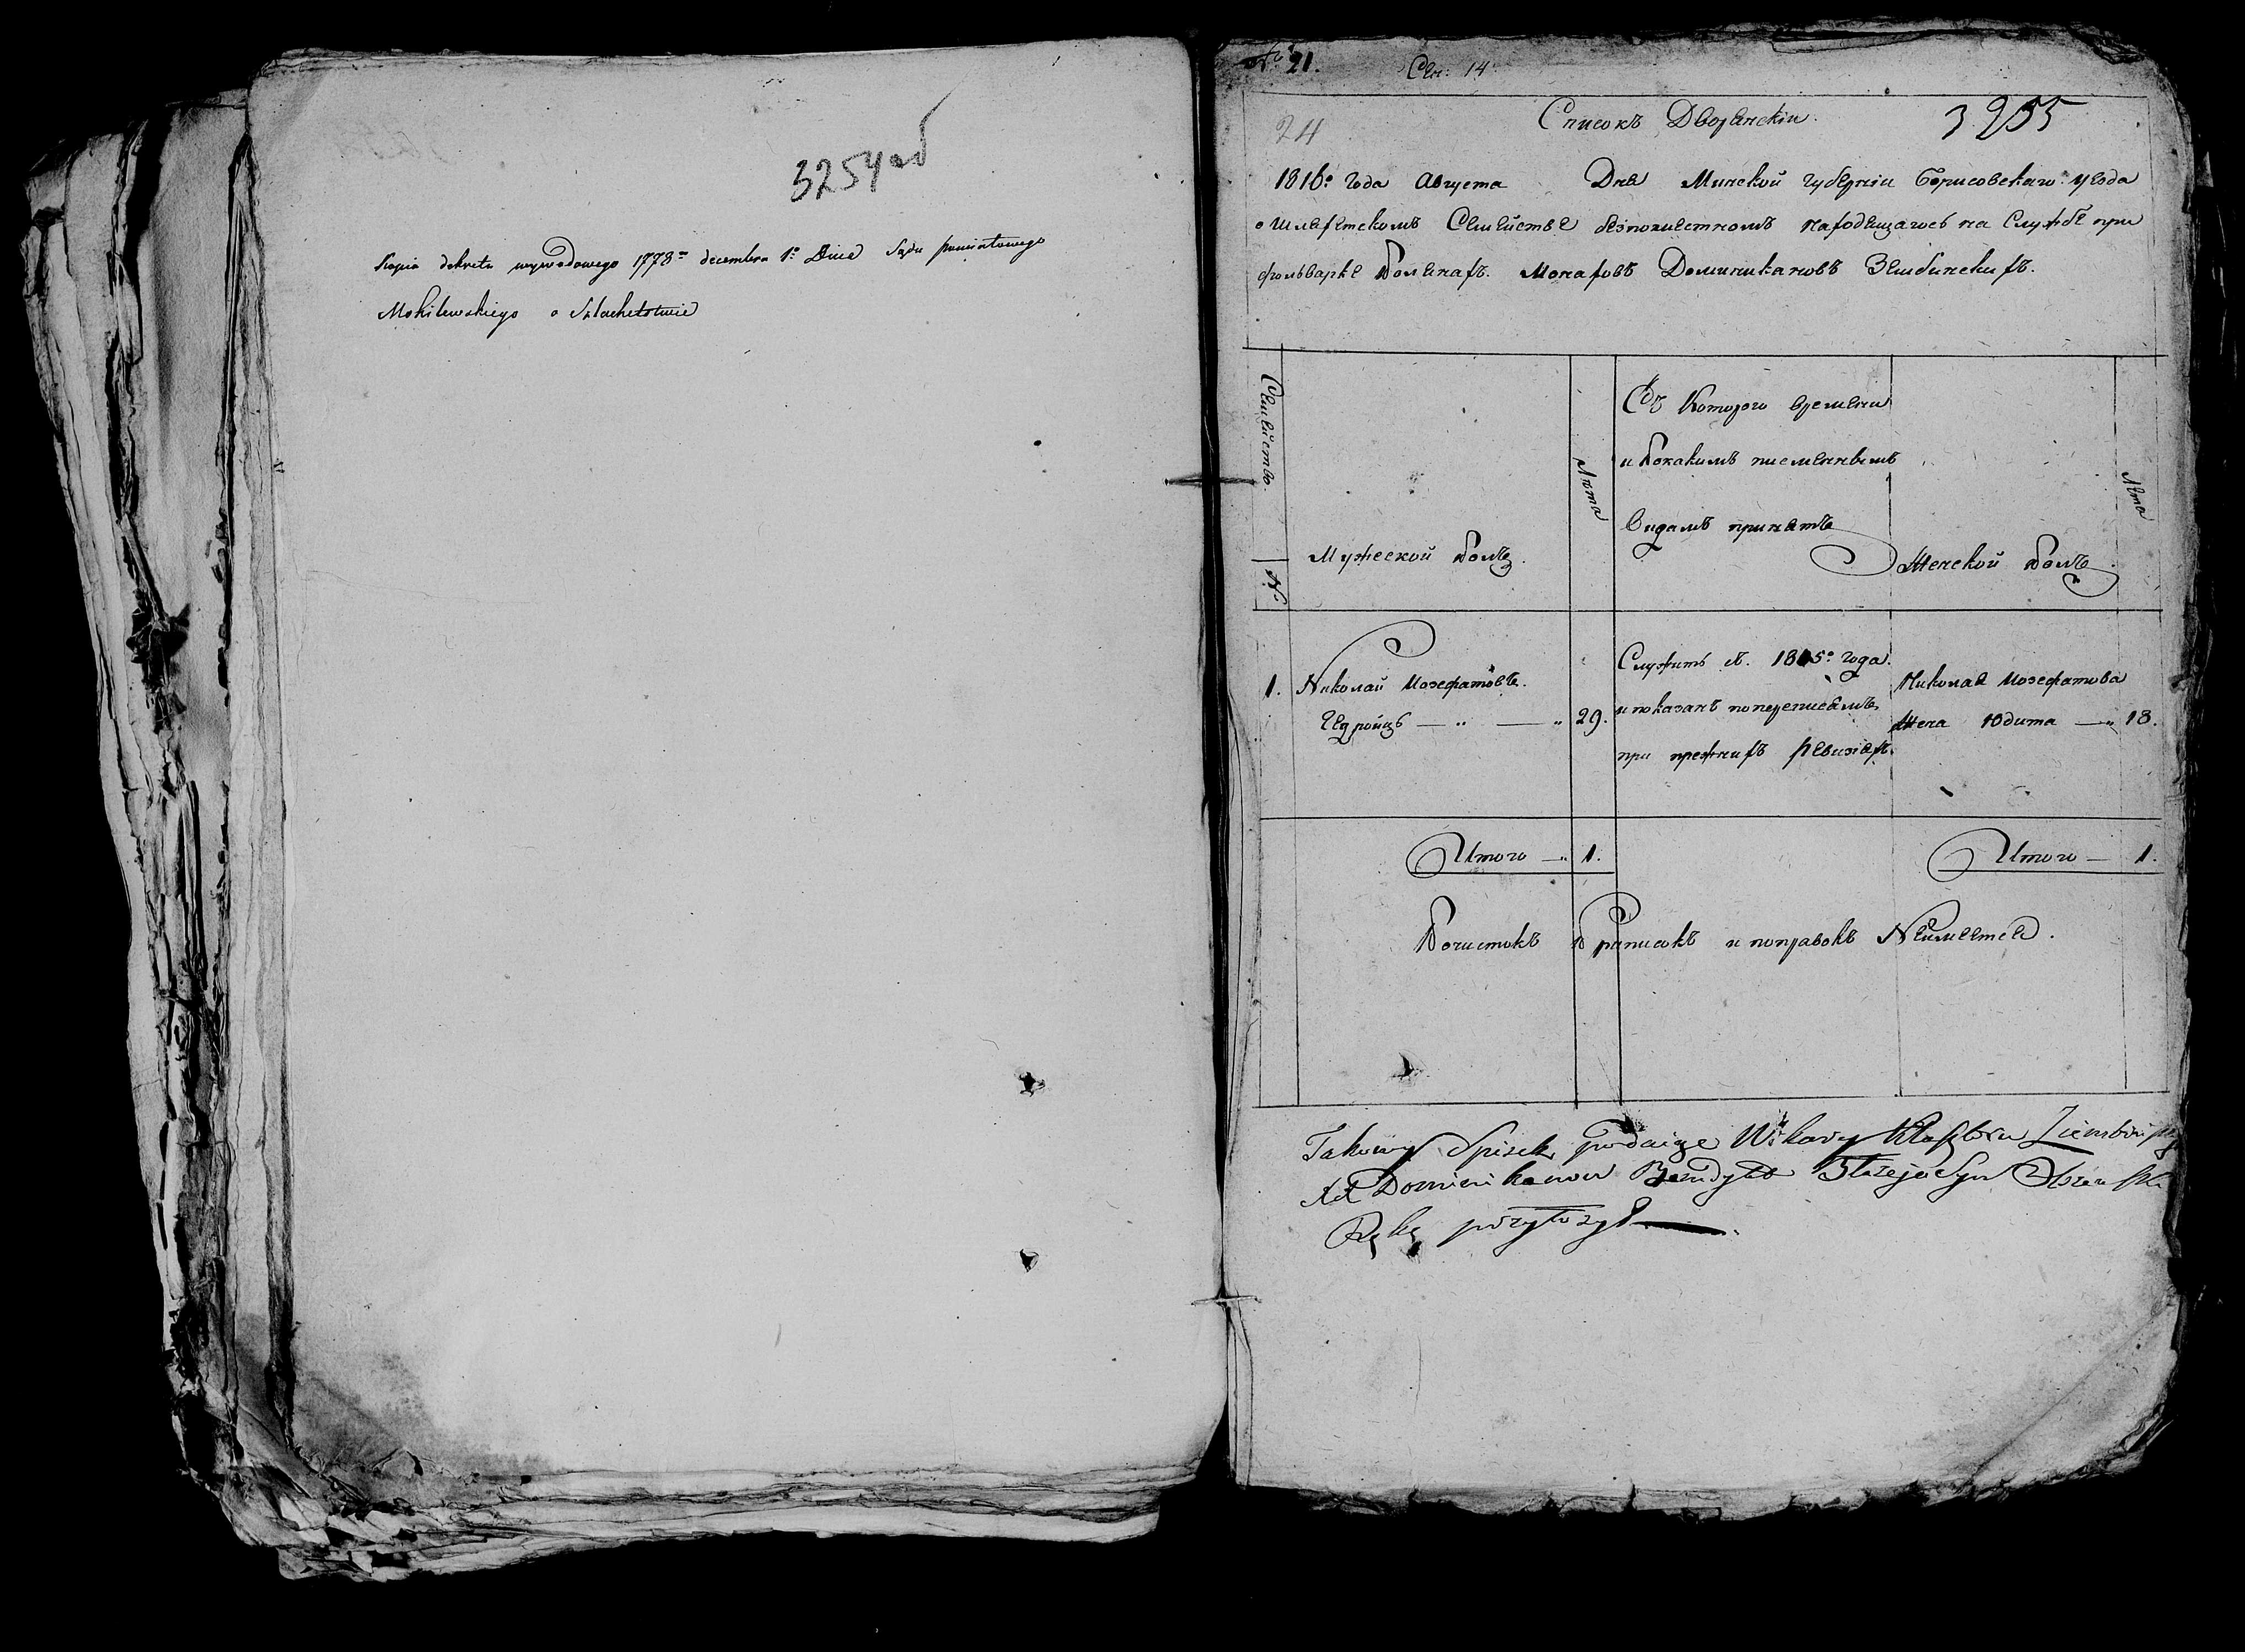 3254 об
Kopia dekretu wywodowego 1778 decembra 1 Dnia Sądu powiatowego
Mohilewskiego o Szlachetstwie
№ 21. Сем: 14
24
Списокъ Дворянскiи.
3255
1816 года Августа Дня Минской губернiи Борисовскаго уезда
о шляхетскомъ Семействе безпоместномъ находящагось на Службе при
фольварке Полянах. Монахов Доминиканов Зембинских.
Семейство.
№
Мужеской Полъ.
Лѣта
Съ Которого времени
и Покакимъ писменнымъ
видамъ принятъ
Женской Полъ
Лѣта
1. Николай Иозефатовъ.
Гедройць — „ — „ 29.
Служить съ 1815 года.
и показанъ попереписямъ
при прежних ревизиях.
Николая Иозефатова
Жена Юдита — „ 18.
Итого — „ 1.
Итого — 1.
Почистокъ Приписокъ и поправокъ Неимеетса.
Takowy Spisek podaiąc Wikary Klasztoru
XX Dominikanow Benedykt Błażeja Syn
Rękę przyłożył